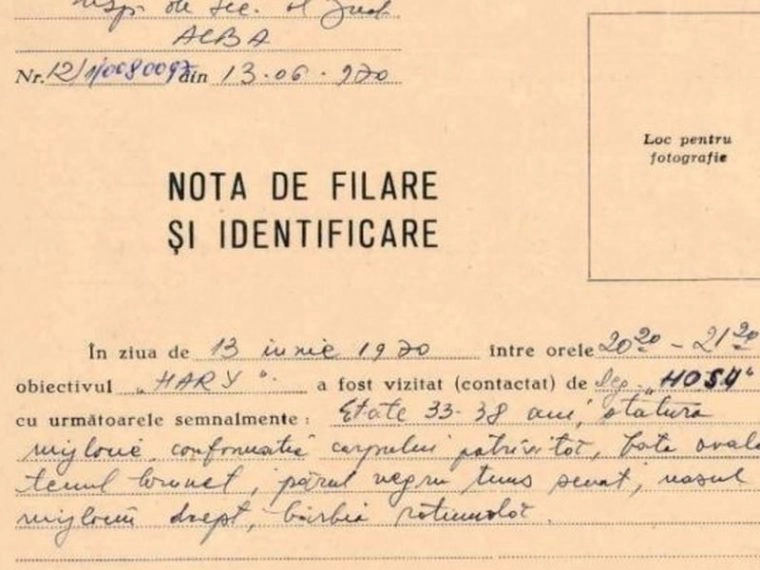 Insp. de Sec. al Jud.
ALBA
Nr. 12/1/0080097 din 13.06.970
Loc pentru
fotografie
NOTA DE FILARE
ȘI IDENTIFICARE
În ziua de 13 iunie 1970 între orele 20²⁰ - 21²⁰
obiectivul "HARY". a fost vizitat (contactat) de leg. "HOSU"
cu următoarele semnalmente: Etate 33-38 ani, statura
mijlocie, conformatia corpului potrivitŏt, fata ovala
tenul brunet, părul negru tuns scurt, nasul
mijlociu drept, bărbia rotundă.